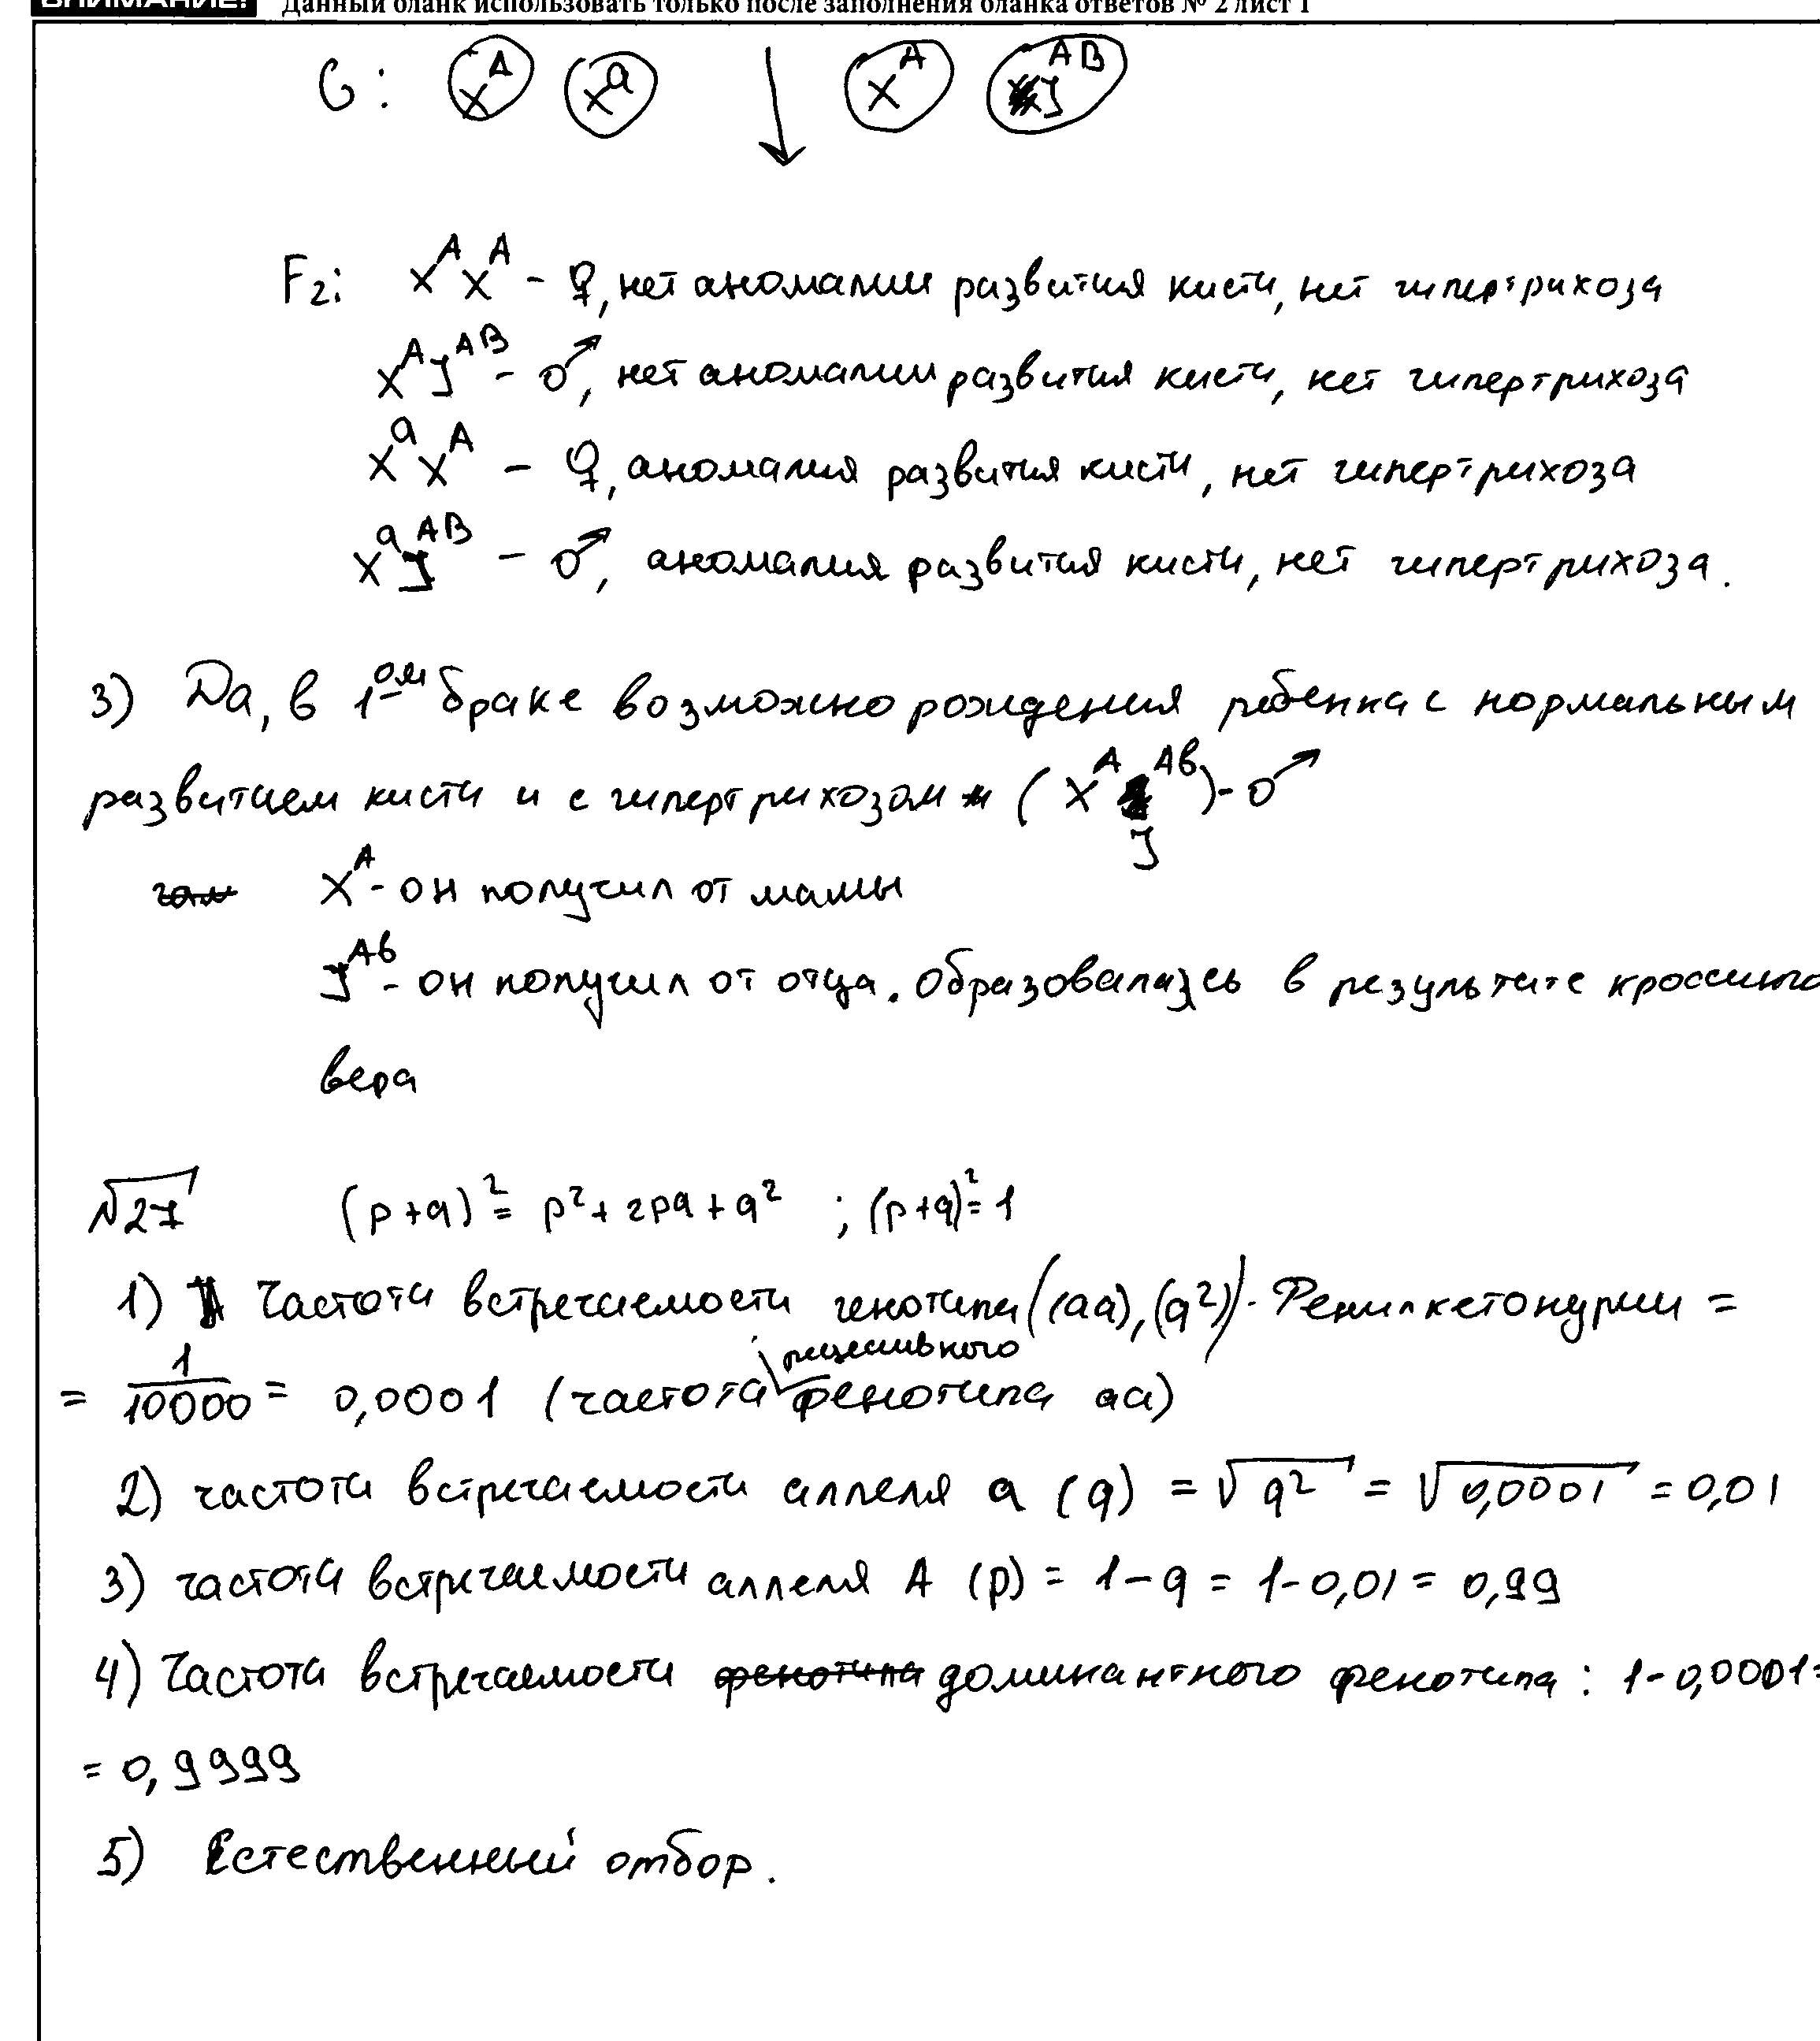 ВНИМАНИЕ! Данный бланк использовать только после заполнения бланка ответов № 2 лист 1
G: X^A X^a ↓ X^A J^AB
F2: X^A X^A - ♀, нет аномалии развития кисти, нет гипертрихоза
X^A J^AB - ♂, нет аномалии развития кисти, нет гипертрихоза
X^a X^A - ♀, аномалия развития кисти, нет гипертрихоза
X^a J^AB - ♂, аномалия развития кисти, нет гипертрихоза.
3) Да, в 1ом браке возможно рождения ребенка с нормальным
развитием кисти и с гипертрихозом (X^A J^Ab) - ♂
X^A - он получил от мамы
J^Ab - он получил от отца. Образовалась в результате кроссинго
вера
№27 (p+q)² = p² + 2pq + q² ; (p+q)² = 1
1) Частота встречаемости генотипа ((aa), (q²)) - Фенилкетонурии =
= 1/10000 = 0,0001 (частота рецесивного фенотипа aa)
2) частота встречаемости аллеля a (q) = √q² = √0,0001 = 0,01
3) частота встречаемости аллеля A (p) = 1-q = 1-0,01 = 0,99
4) Частота встречаемости доминантного фенотипа: 1-0,0001=
= 0,9999
5) Естественный отбор.